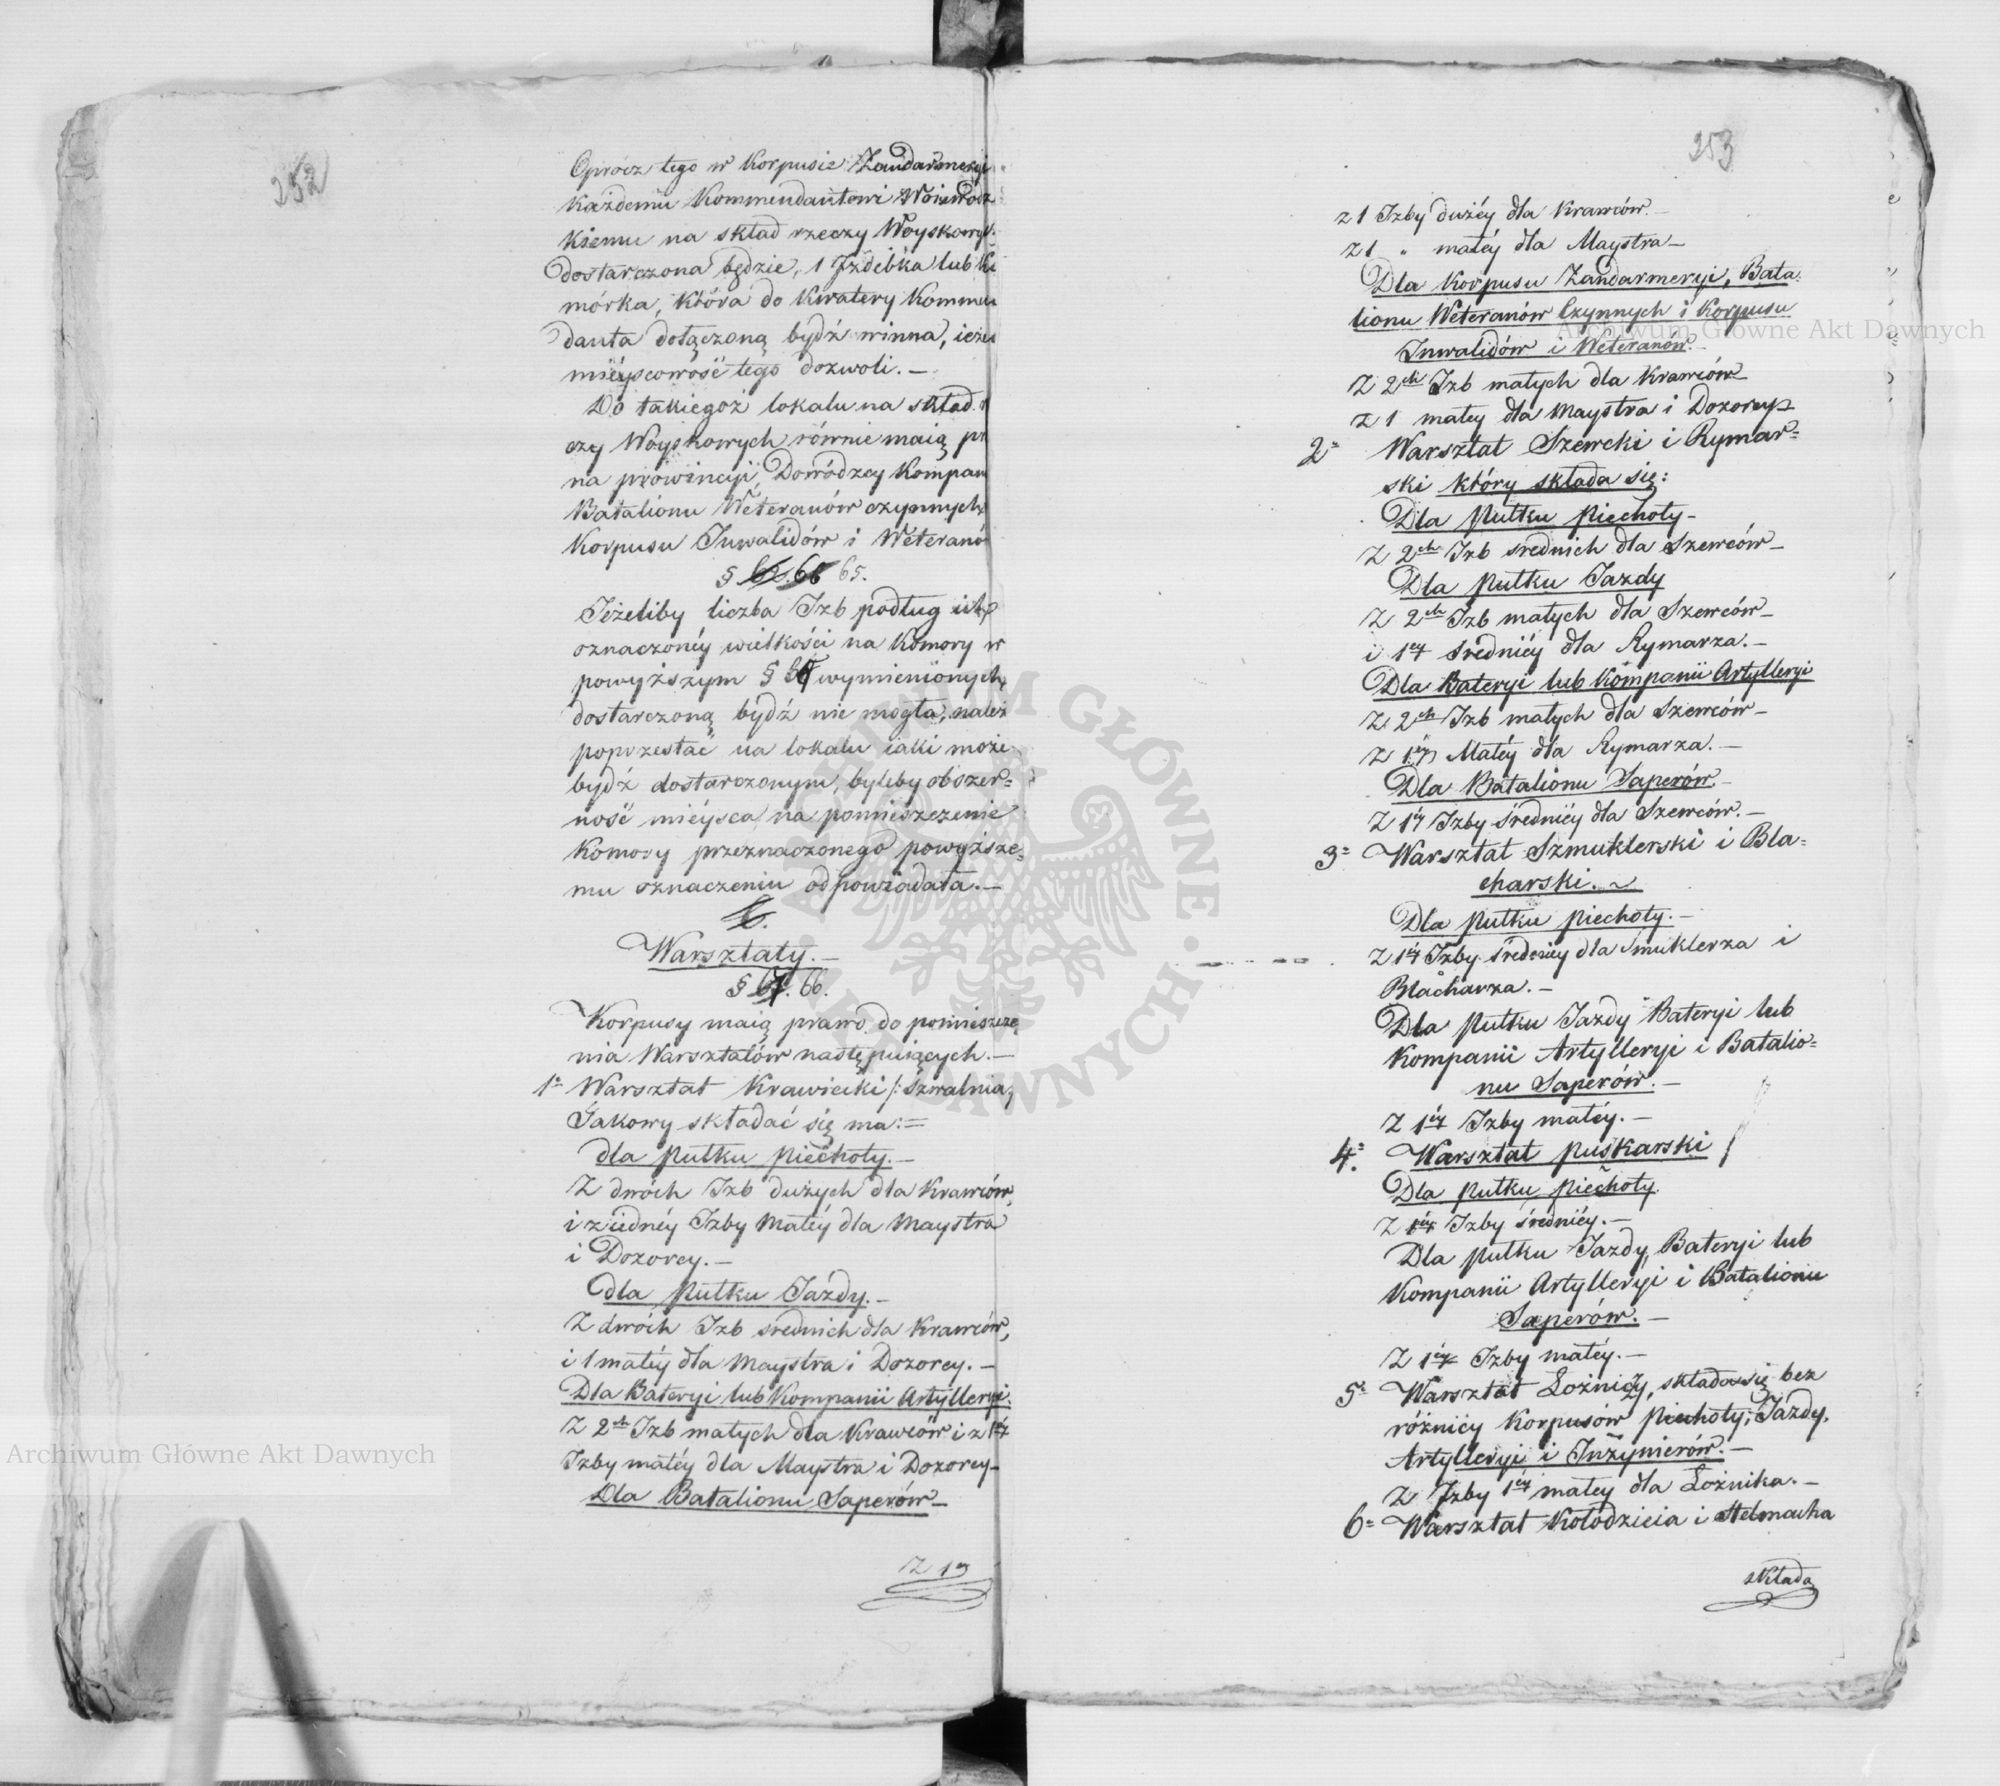 252
Oprócz tego w Korpusie Żandarmeryi
każdemu Kommendantowi Woiewódz
kiemu na skład rzeczy Woyskowych
dostarczona będzie, 1 Izdebka lub Ko
mórka, która do kwatery Kommen
danta dołączoną bydź winna, ieżeli
mieyscowość tego dozwoli. —
Do takiegoż lokalu na skład
czy Woyskowych równie maią pr
na prowincyi, Dowódzcy Kompanii
Batalionu Weteranów czynnych
Korpusu Inwalidów i Weteranó
§ 65.
Jeżeliby liczba Izb podług ich
oznaczonéy wielkości na Komory w
powyższym § wymienionych
dostarczoną bydź nie mogła, należ
poprzestać na lokalu iaki może
bydź dostarczonym, byleby obszer=
ność mieysca na pomieszczenie
Komory przeznaczonego powyższe=
mu oznaczeniu odpowiadała. —
Warsztaty. —
§ 66.
Korpusy maią prawo do pomieszcze
nia Warsztatów następuiących. —
1° Warsztat Krawiecki /: Szwalnia,
Jakowy składać się ma: =
dla Pułku Piechoty. —
Z dwóch Izb dużych dla Krawców,
i z iednéy Izby Małéy dla Maystra
i Dozorcy. —
dla Pułku Jazdy. —
Z dwóch Izb srednich dla Krawców,
i 1 małéy dla Maystra i Dozorcy. —
Dla Bateryi lub Kompanii Artylleryi.
Z 2ch Izb małych dla Krawców i z 1éy
Izby małéy dla Maystra i Dozorcy —
Dla Batalionu Saperów —
Z 1éy
253
z 1 Izby dużéy dla Krawców. —
z 1 " małéy dla Maystra —
Dla Korpusu Żandarmeryi, Bata=
lionu Weteranów Czynnych i Korpusu
Inwalidów i Weteranów. —
Z 2ch Izb małych dla Krawców —
z 1 małey dla Maystra i Dozorcy
2° Warsztat Szewcki i Rymar=
ski który składa się:
Dla Pułku Piechoty —
Z 2ch Izb srednich dla Szewców —
Dla Pułku Jazdy
Z 2ch Izb małych dla Szewców —
i 1éy sredniéy dla Rymarza. —
Dla Bateryi lub Kompanii Artylleryi
Z 2ch Izb małych dla Szewców —
Z 1éy Małéy dla Rymarza. —
Dla Batalionu Saperów. —
Z 1éy Izby średniéy dla Szewców. —
3° Warsztat Szmuklerski i Bla=
charski. ~
Dla Pułku Piechoty. —
Z 1éy Izby sredniéy dla Smuklerza i
Blacharza. —
Dla Pułku Jazdy Bateryi lub
Kompanii Artylleryi i Batalio=
nu Saperów. —
Z 1éy Izby małéy. —
4° Warsztat puszkarski
Dla Pułku Piechoty.
Z 1éy Izby średniéy. —
Dla Pułku Jazdy, Bateryi lub
Kompanii Artylleryi i Batalionu
Saperów. —
Z 1éy Izby małéy. —
5° Warsztat Łożniczy, składa się bez
różnicy Korpusów Piechoty, Jazdy,
Artylleryi i Inżynierów. —
Z Izby 1éy małey dla Łożnika. —
6° Warsztat Kołodzieia i Stelmacha
składa
Archiwum Główne Akt Dawnych
Archiwum Główne Akt Dawnych
ARCHIWUM GŁÓWNE AKT DAWNYCH